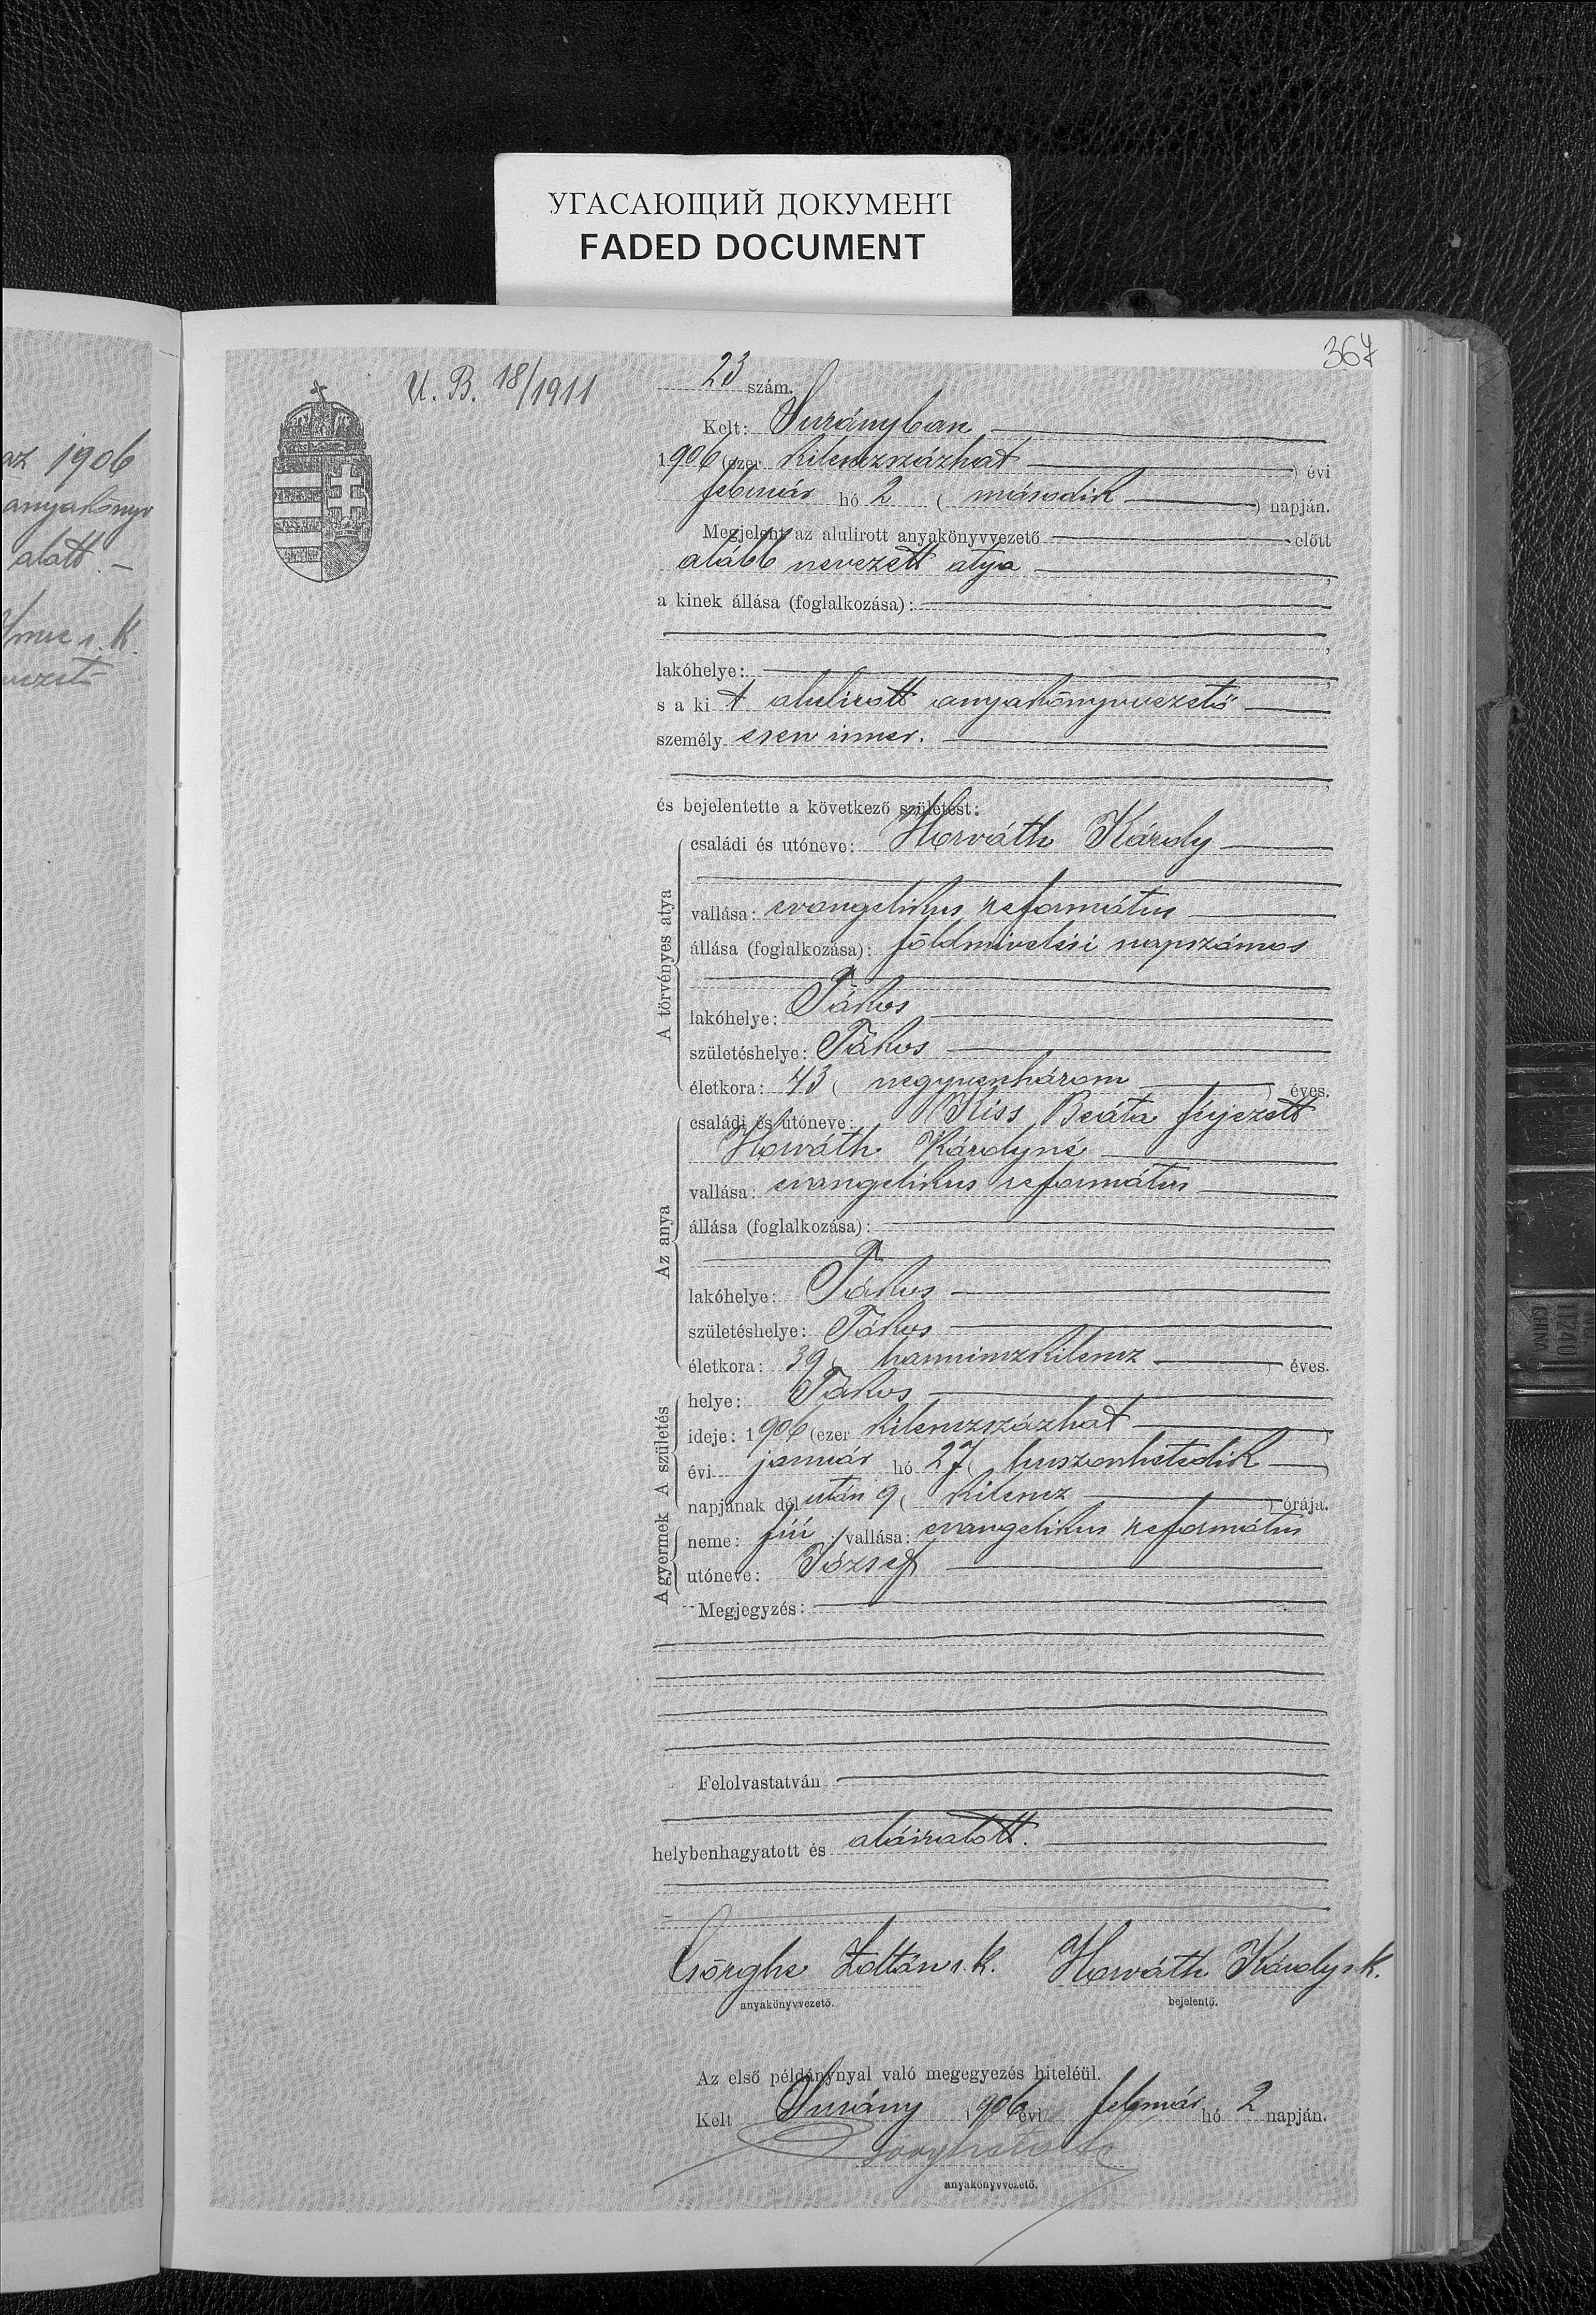 УГАСАЮЩИЙ ДОКУМЕНТ
FADED DOCUMENT
364
az 1906
anyakönyv
alatt. —
Imre s. k.
U. B. 18/1911
23 szám.
Kelt: Surányban
1906 (ezer kilenczszázhat ) évi
február hó 2 ( második ) napján.
Megjelent az alulirott anyakönyvvezető előtt
alább nevezett atya ,
a kinek állása (foglalkozása):
,
lakóhelye: ,
s a ki t alulirott anyakönyvvezető
személy esen ismer.
,
és bejelentette a következő születést:
A törvényes atya
családi és utóneve: Horváth Károly
vallása: evangelikus református
állása (foglalkozása): földmivelési napszámos
lakóhelye: Tákos
születéshelye: Tákos
életkora: 43 ( negyvenhárom ) éves.
Az anya
családi és utóneve: Kiss Beáta férjezett
Horváth Károlyné
vallása: evangelikus református
állása (foglalkozása):
lakóhelye: Tákos
születéshelye: Tákos
életkora: 39 ( harminczkilencz ) éves.
A születés
helye: Tákos
ideje: 1906 (ezer kilenczszázhat )
évi január hó 27 ( huszonhetedik )
napjának dél után 9 ( kilencz ) órája.
A gyermek
neme: fiú ; vallása: evangelikus református
utóneve: József
Megjegyzés:
Felolvastatván
helybenhagyatott és aláiratott.
Csörghe Zoltán s. k. Horváth Károly s. k.
anyakönyvvezető. bejelentő.
Az első példánynyal való megegyezés hiteléül.
Kelt Surány 1906 évi február hó 2 napján.
anyakönyvvezető.